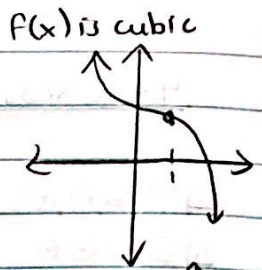 f(x) is cubic